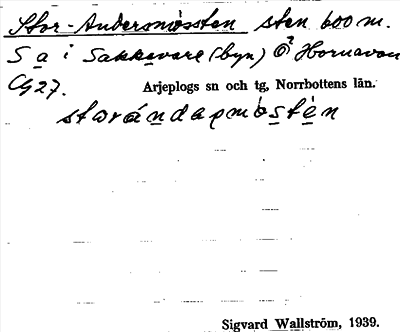 Stor-Andersmässten sten 600 m.
S a i Sakkavare (byn) Ö Hornavan
CG27. Arjeplogs sn och tg, Norrbottens län.
Sigvard Wallström, 1939.